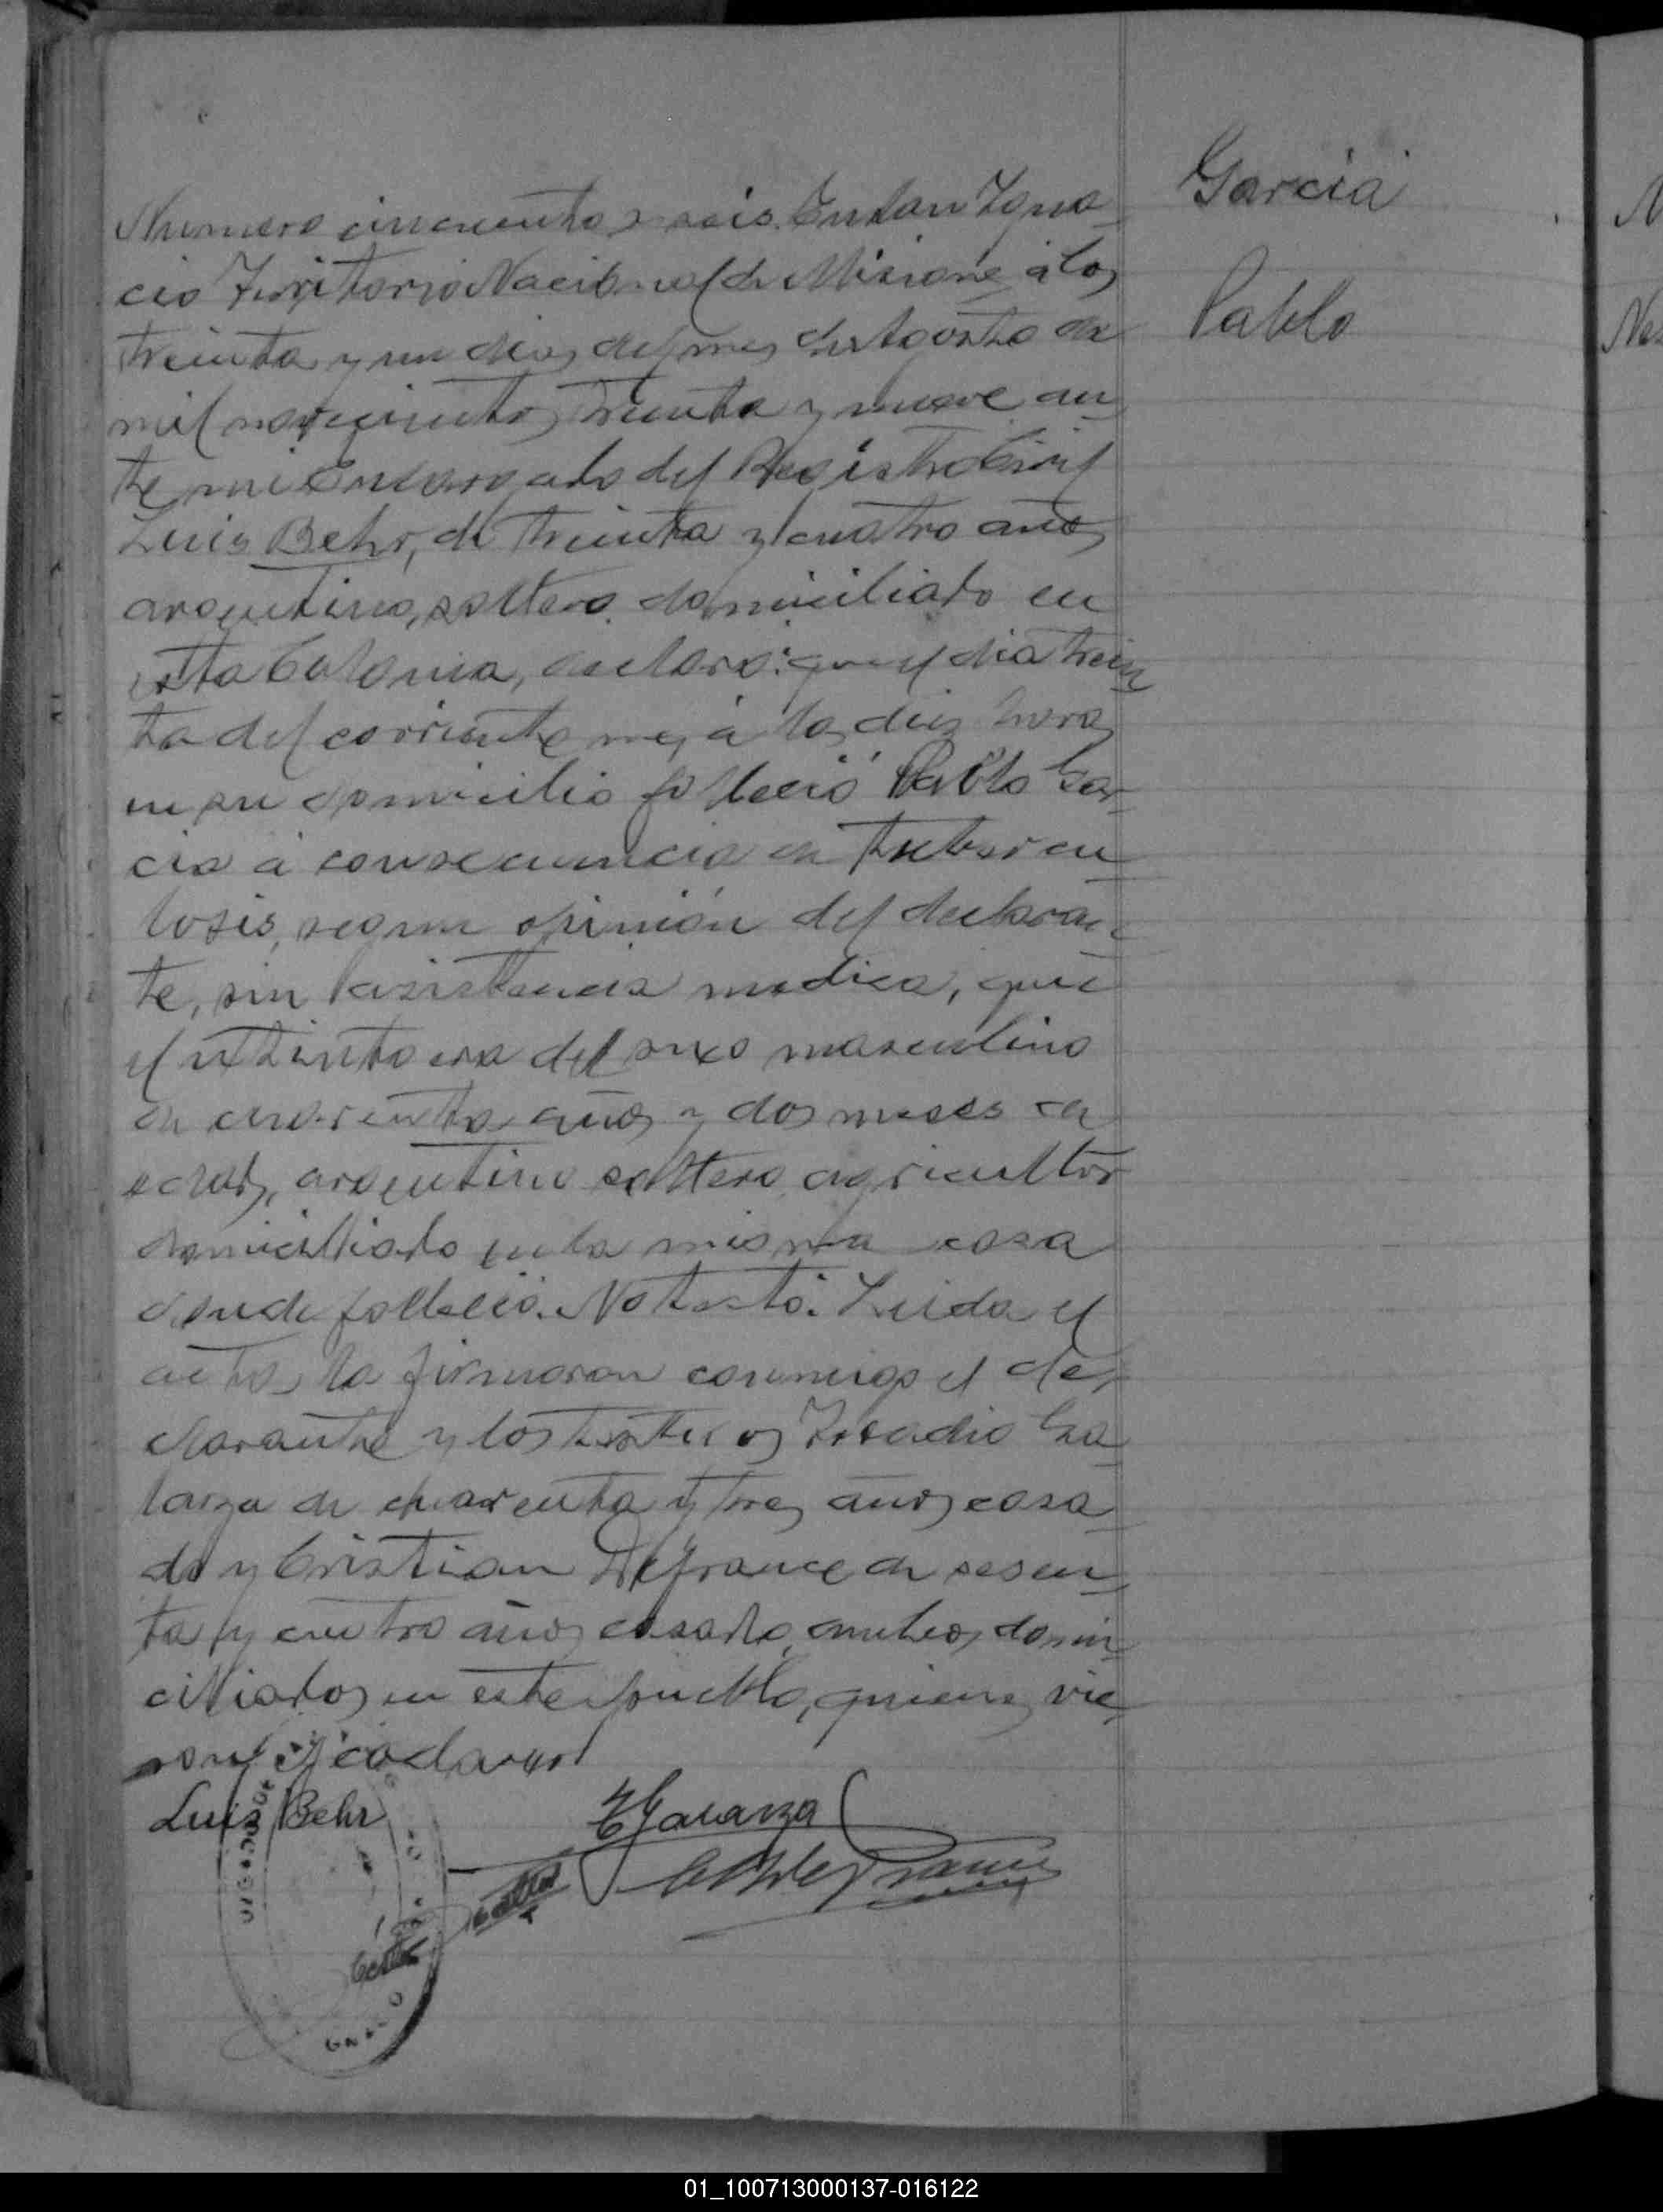 Garcia
Pablo
Numero cincuenta y seis. En San Igna-
cio Territorio Nacional de Misiones á los
treinta y un dias del mes de Agosto de
mil novecientos treinta y nueve an-
te mi Encargado del Registro Civil
Luis Behr, de treinta y cuatro años
argentino, soltero domiciliado en
esta Colonia, declaró: que el dia trein-
ta del corriente mes á las diez horas
en su domicilio falleció Pablo Gar-
cia á consecuencia de tubercu-
losis, segun opinión del declaran-
te, sin asistencia medica, que
el extinto era del sexo masculino
de cuarenta años y dos meses de
edad, argentino soltero agricultor
domiciliado en la misma casa
donde falleció. No testó. Leida el
acta, la firmaron conmigo el de-
clarante y los testigos Ga-
larza de cuarenta y tres años casa-
do y Cristian Defrance de sesen-
ta y cuatro años casado, ambos domi-
ciliados en este pueblo, quienes vie-
ron el cadaver
Luis Behr
01_100713000137-016122